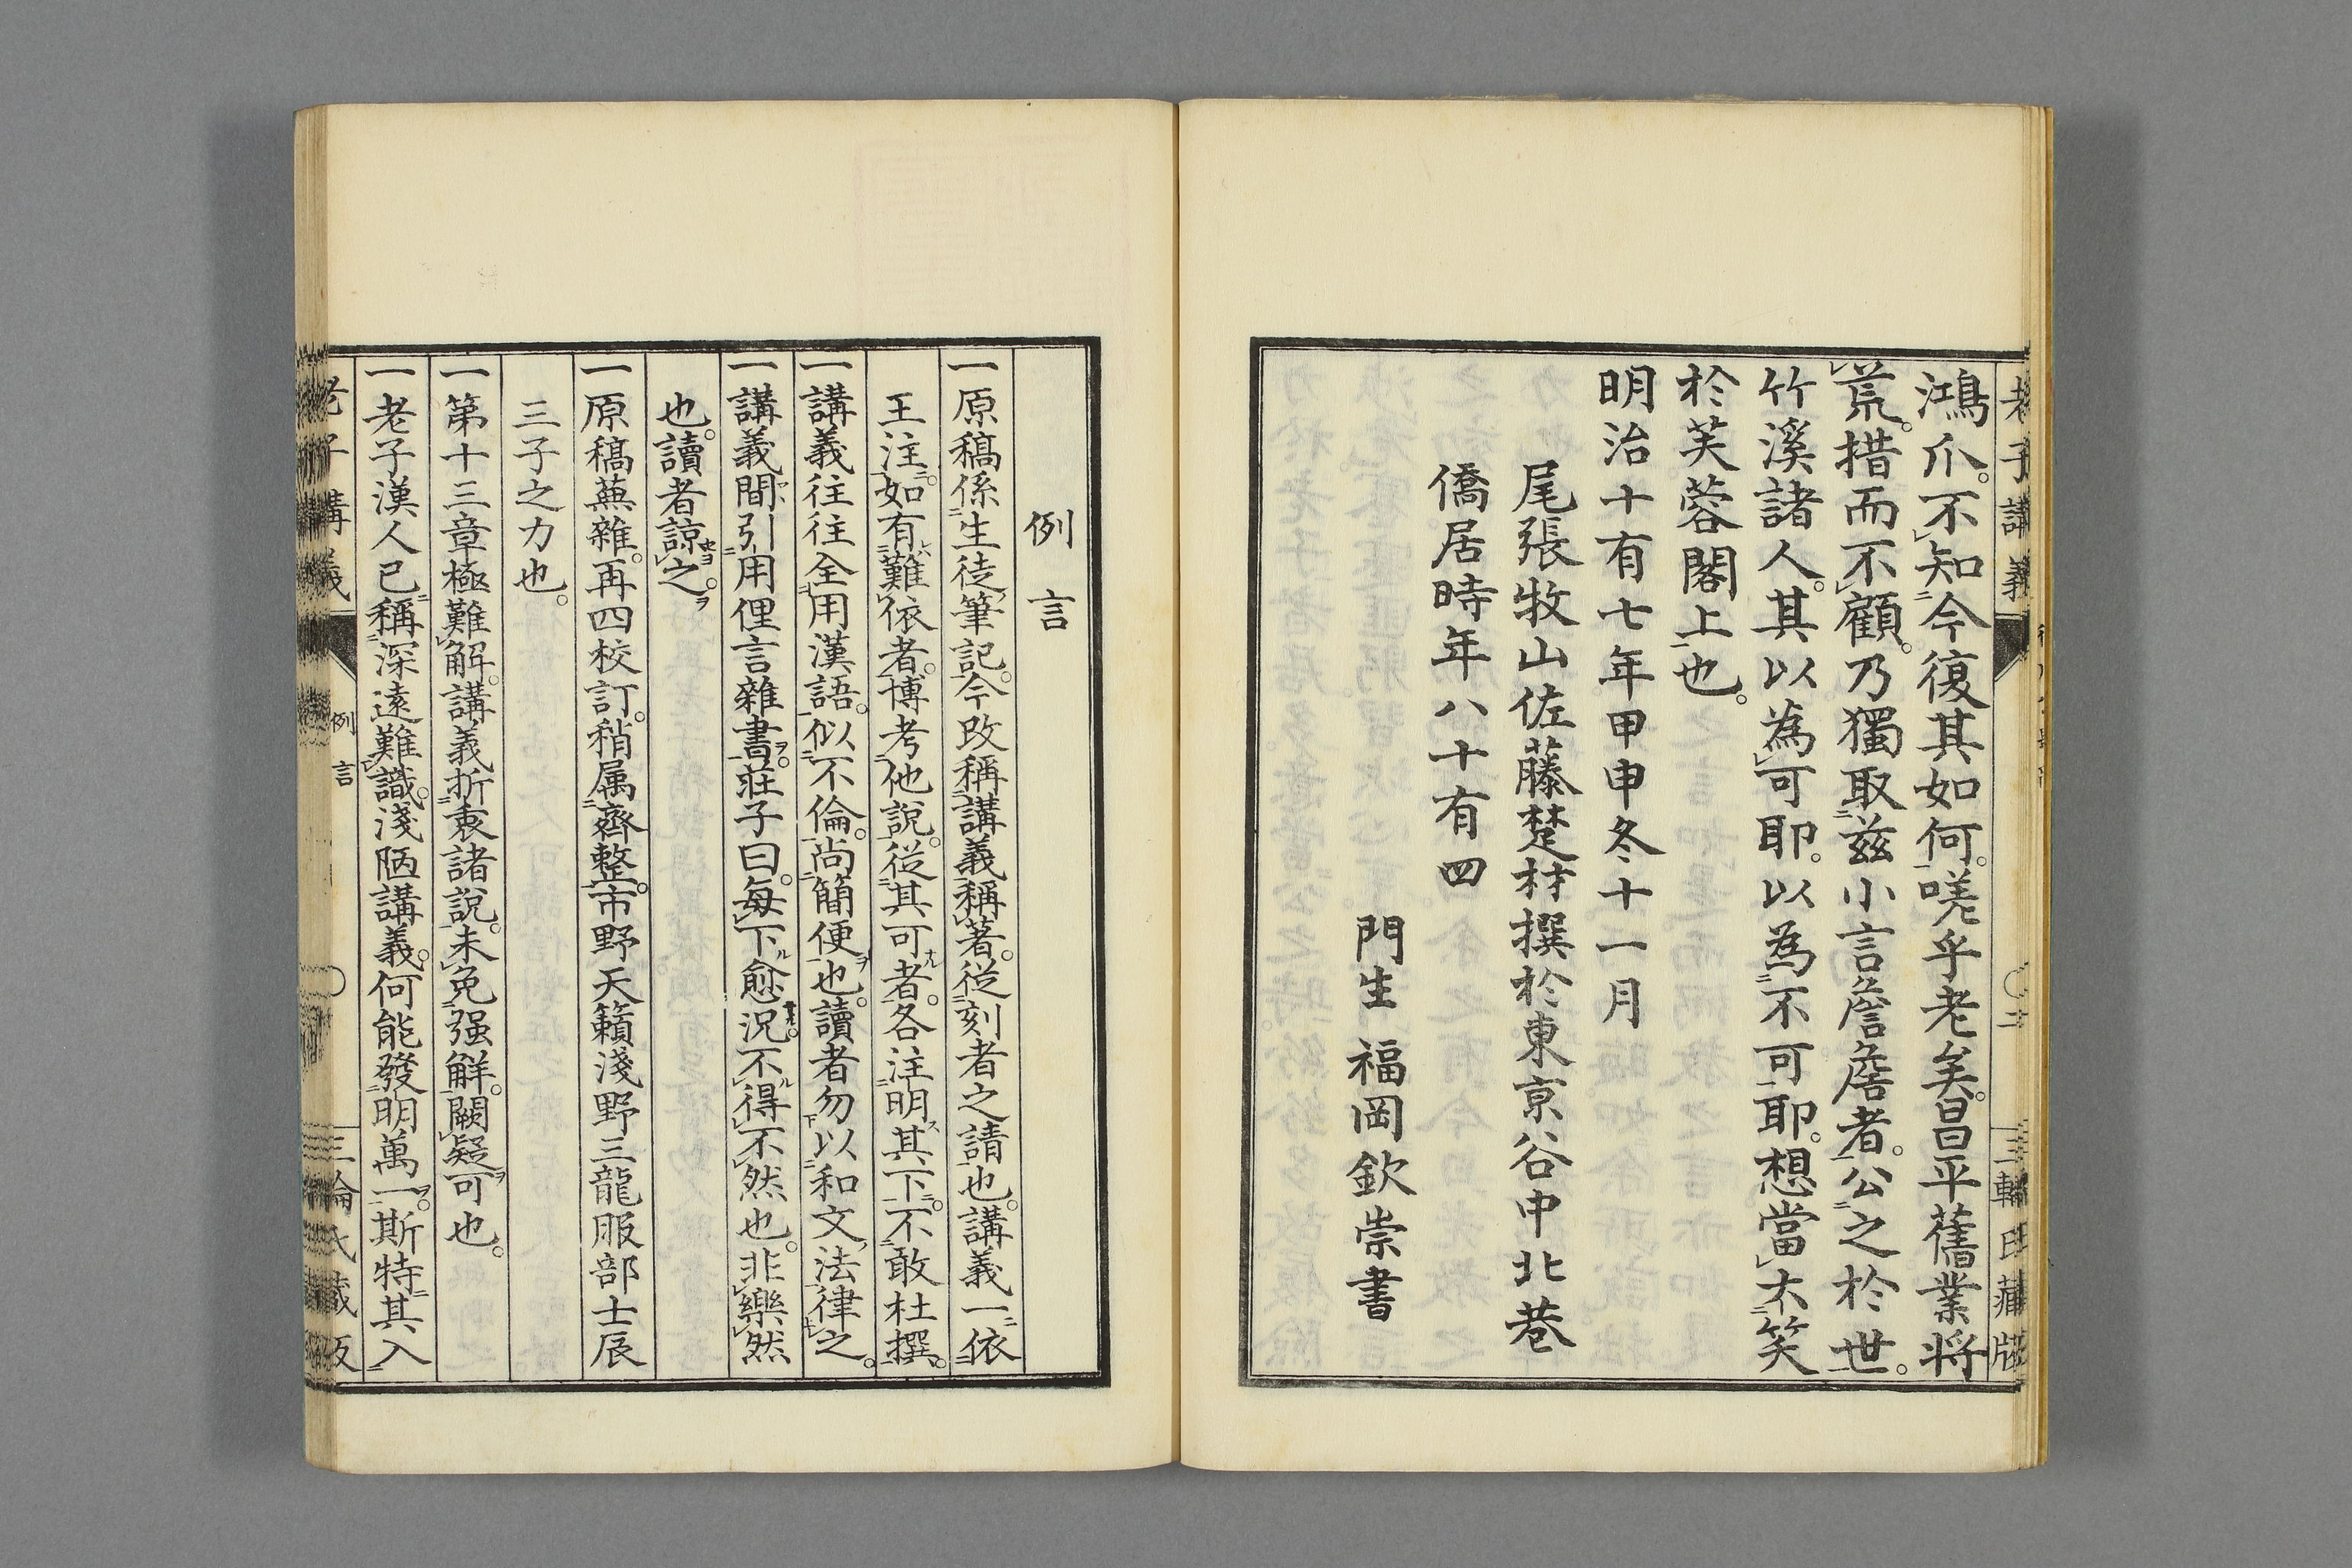 鴻爪。不知今復其如何。嗟乎老矣。昌平舊業將
荒。措而不顧。乃獨取茲小言詹詹者。公之於世。
竹溪諸人。其以為可耶。以為不可耶。想當大笑
於芙蓉閣上也。
明治十有七年甲申冬十一月
尾張牧山佐藤楚材撰於東京谷中北巷
僑居時年八十有四
門生 福岡欽崇書
例言
一原稿係生徒筆記。今改稱講義稱著。從刻者之請也。講義一依
王注。如有難依者。博考他說。從其可者。各注明其下。不敢杜撰。
一講義往往全用漢語。似不倫。尚簡便也。讀者勿以和文法律之。
一講義間引用俚言雜書。莊子曰。每下愈況。不得不然也。非樂然
也。讀者諒之。
一原稿蕪雜。再四校訂。稍属齊整。市野天籟淺野三龍服部士辰
三子之力也。
一第十三章極難解。講義折衷諸說。未免强解。闕疑可也。
一老子漢人已稱深遠難識。淺陋講義。何能發明萬一。斯特其入
老子講義
例言
三輪氏藏版